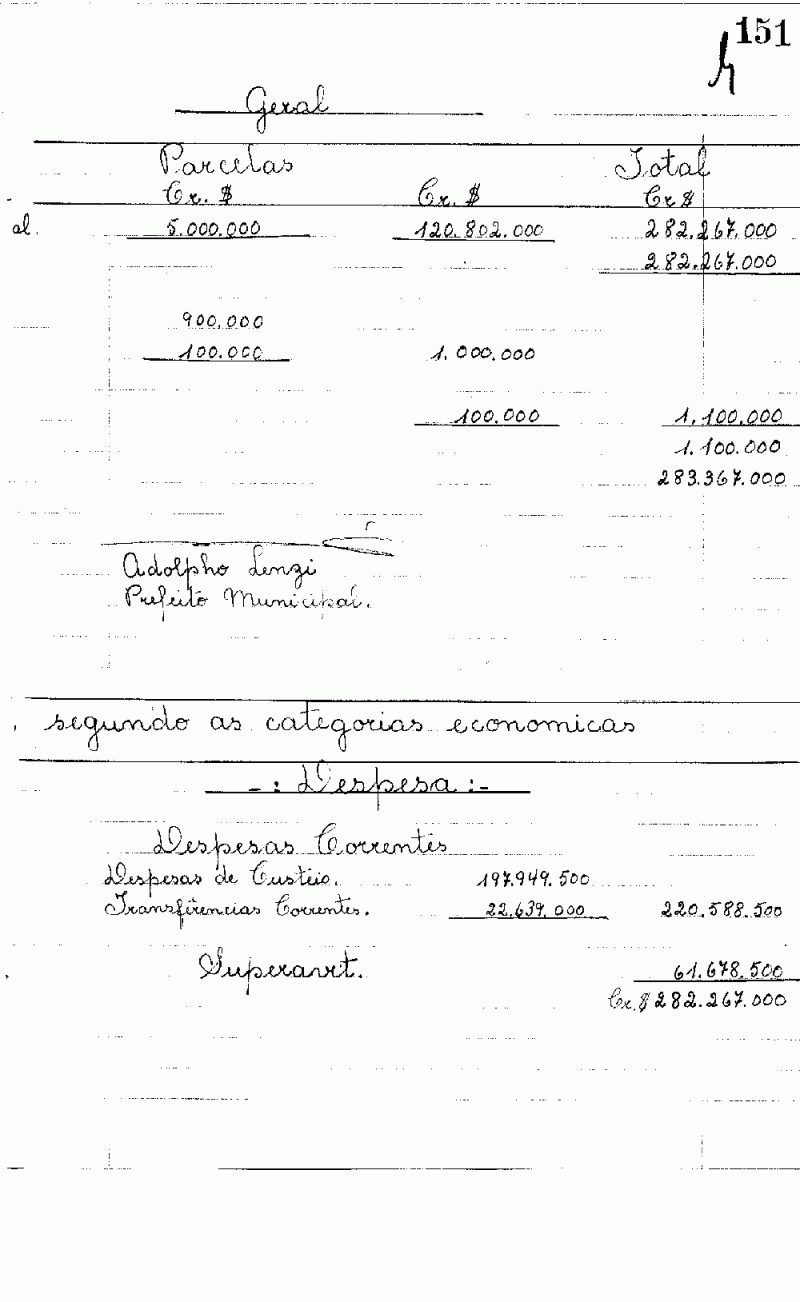 151
Geral
Parcelas Total
Cr. $ Cr. $ Cr $
al. 5.000.000 120.802.000 282.267.000
282.267.000
900.000
100.000 1.000.000
100.000 1.100.000
1.100.000
283.367.000
Adolpho Lenzi
Prefeito Municipal.
segundo as categorias economicas
-: Despesa :-
Despesas Correntes
Despesas de Custeio. 197.949.500
Transfirencias Correntes. 22.639.000 220.588.500
Superavit. 61.678.500
Cr. $ 282.267.000